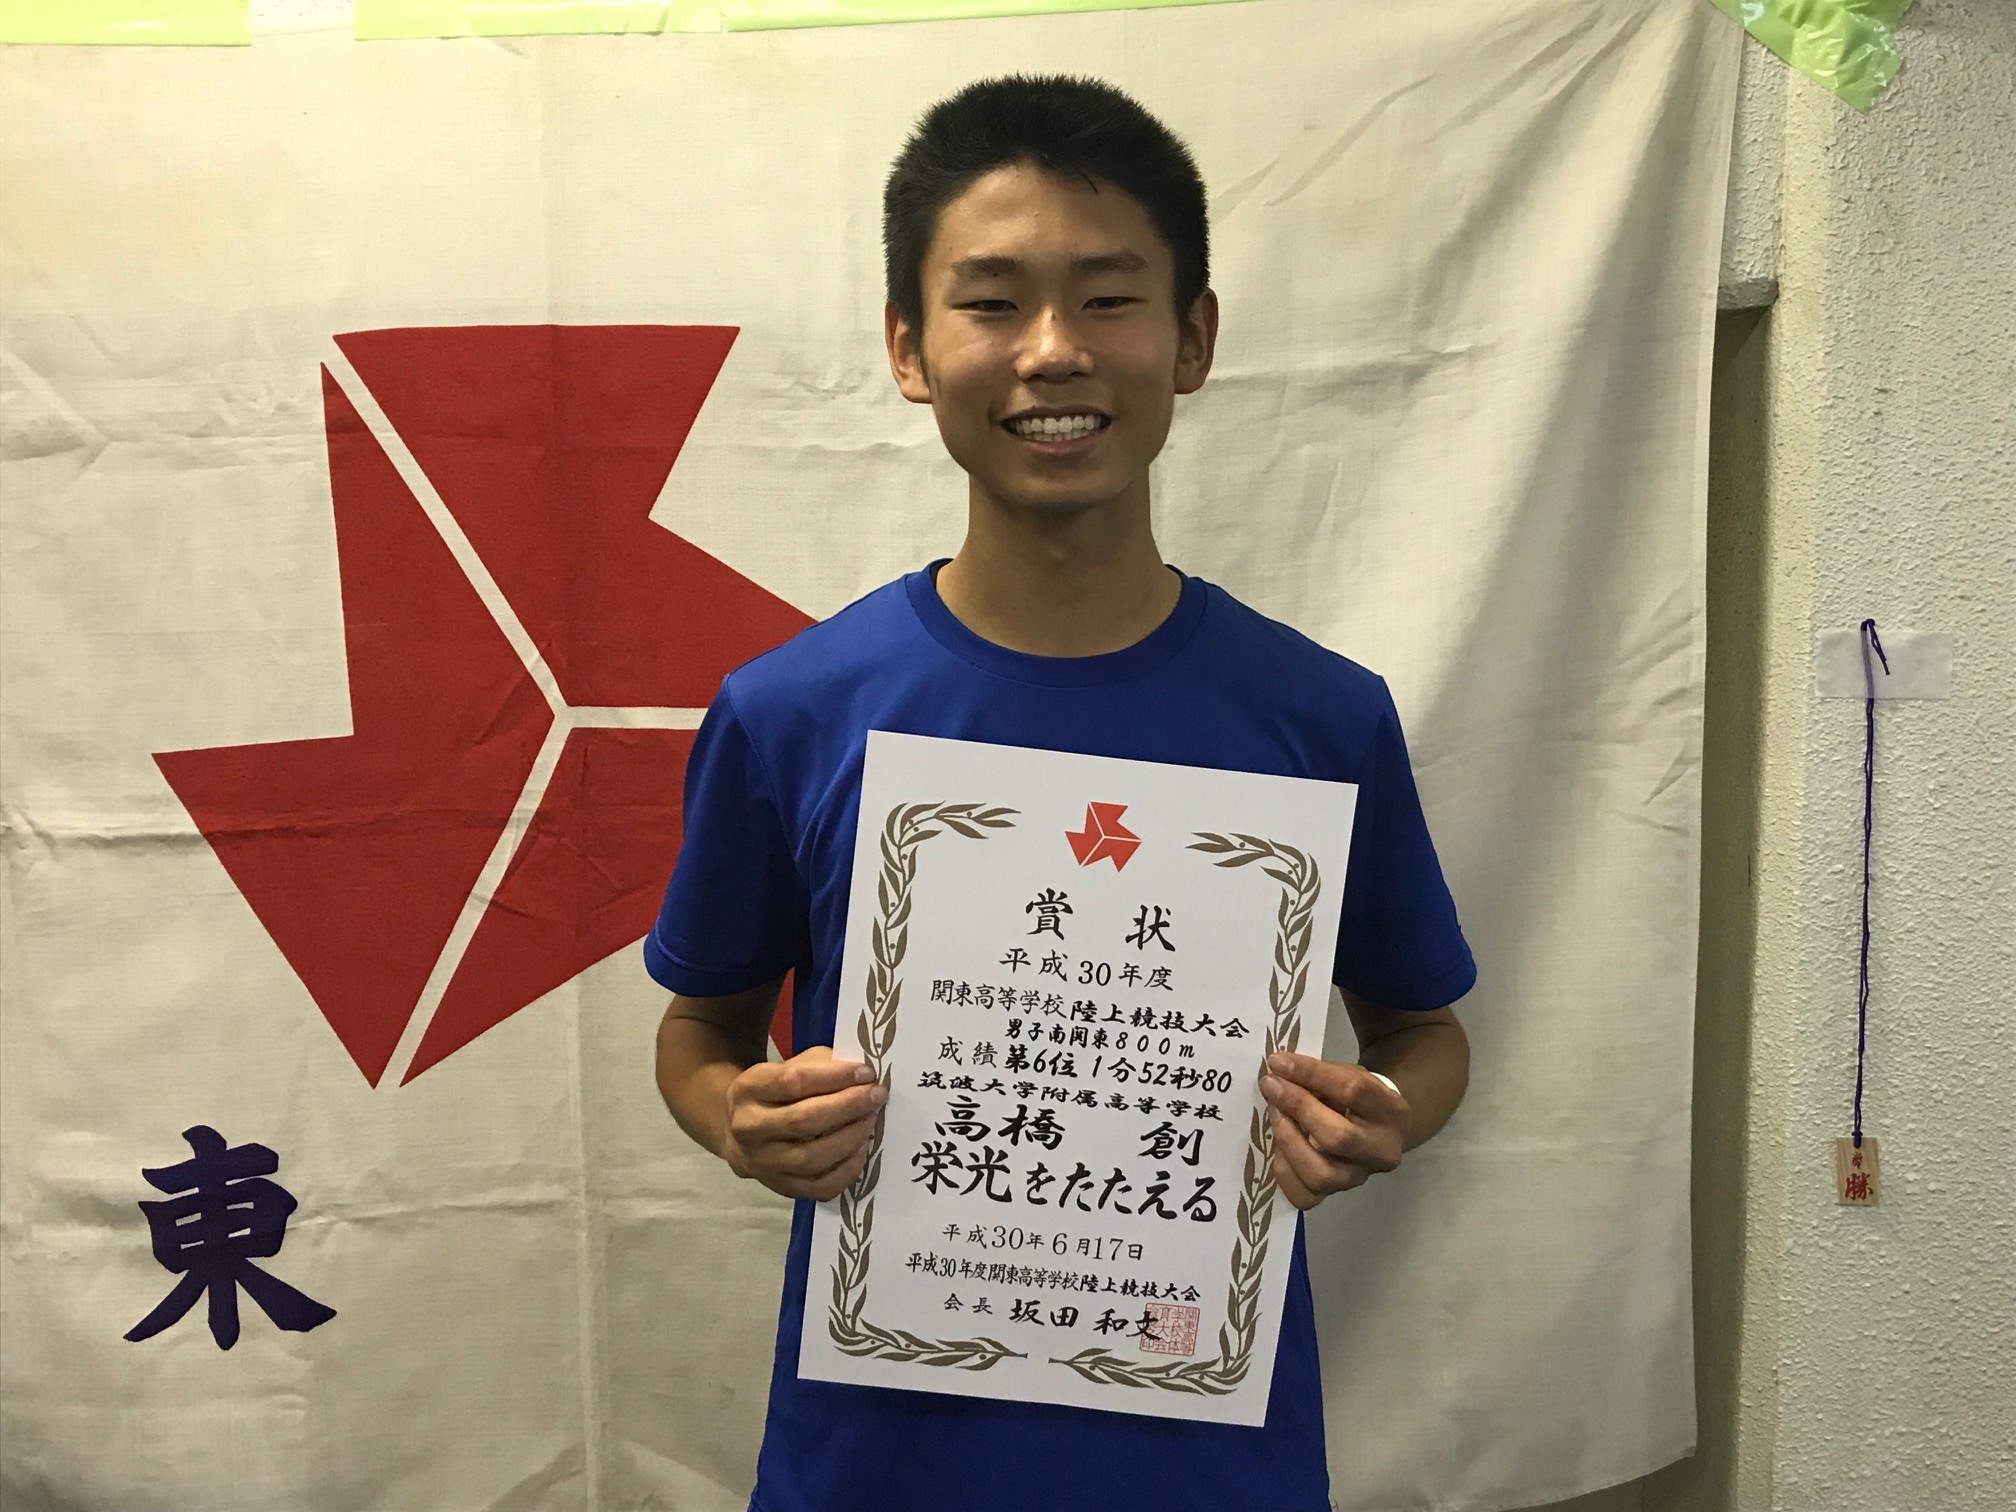 東
賞 状
平成30年度
関東高等学校陸上競技大会
男子南関東800m
成績第6位 1分52秒80
筑波大学附属高等学校
高橋 創
栄光をたたえる
平成30年6月17日
平成30年度関東高等学校陸上競技大会
会長 坂田 和文
勝